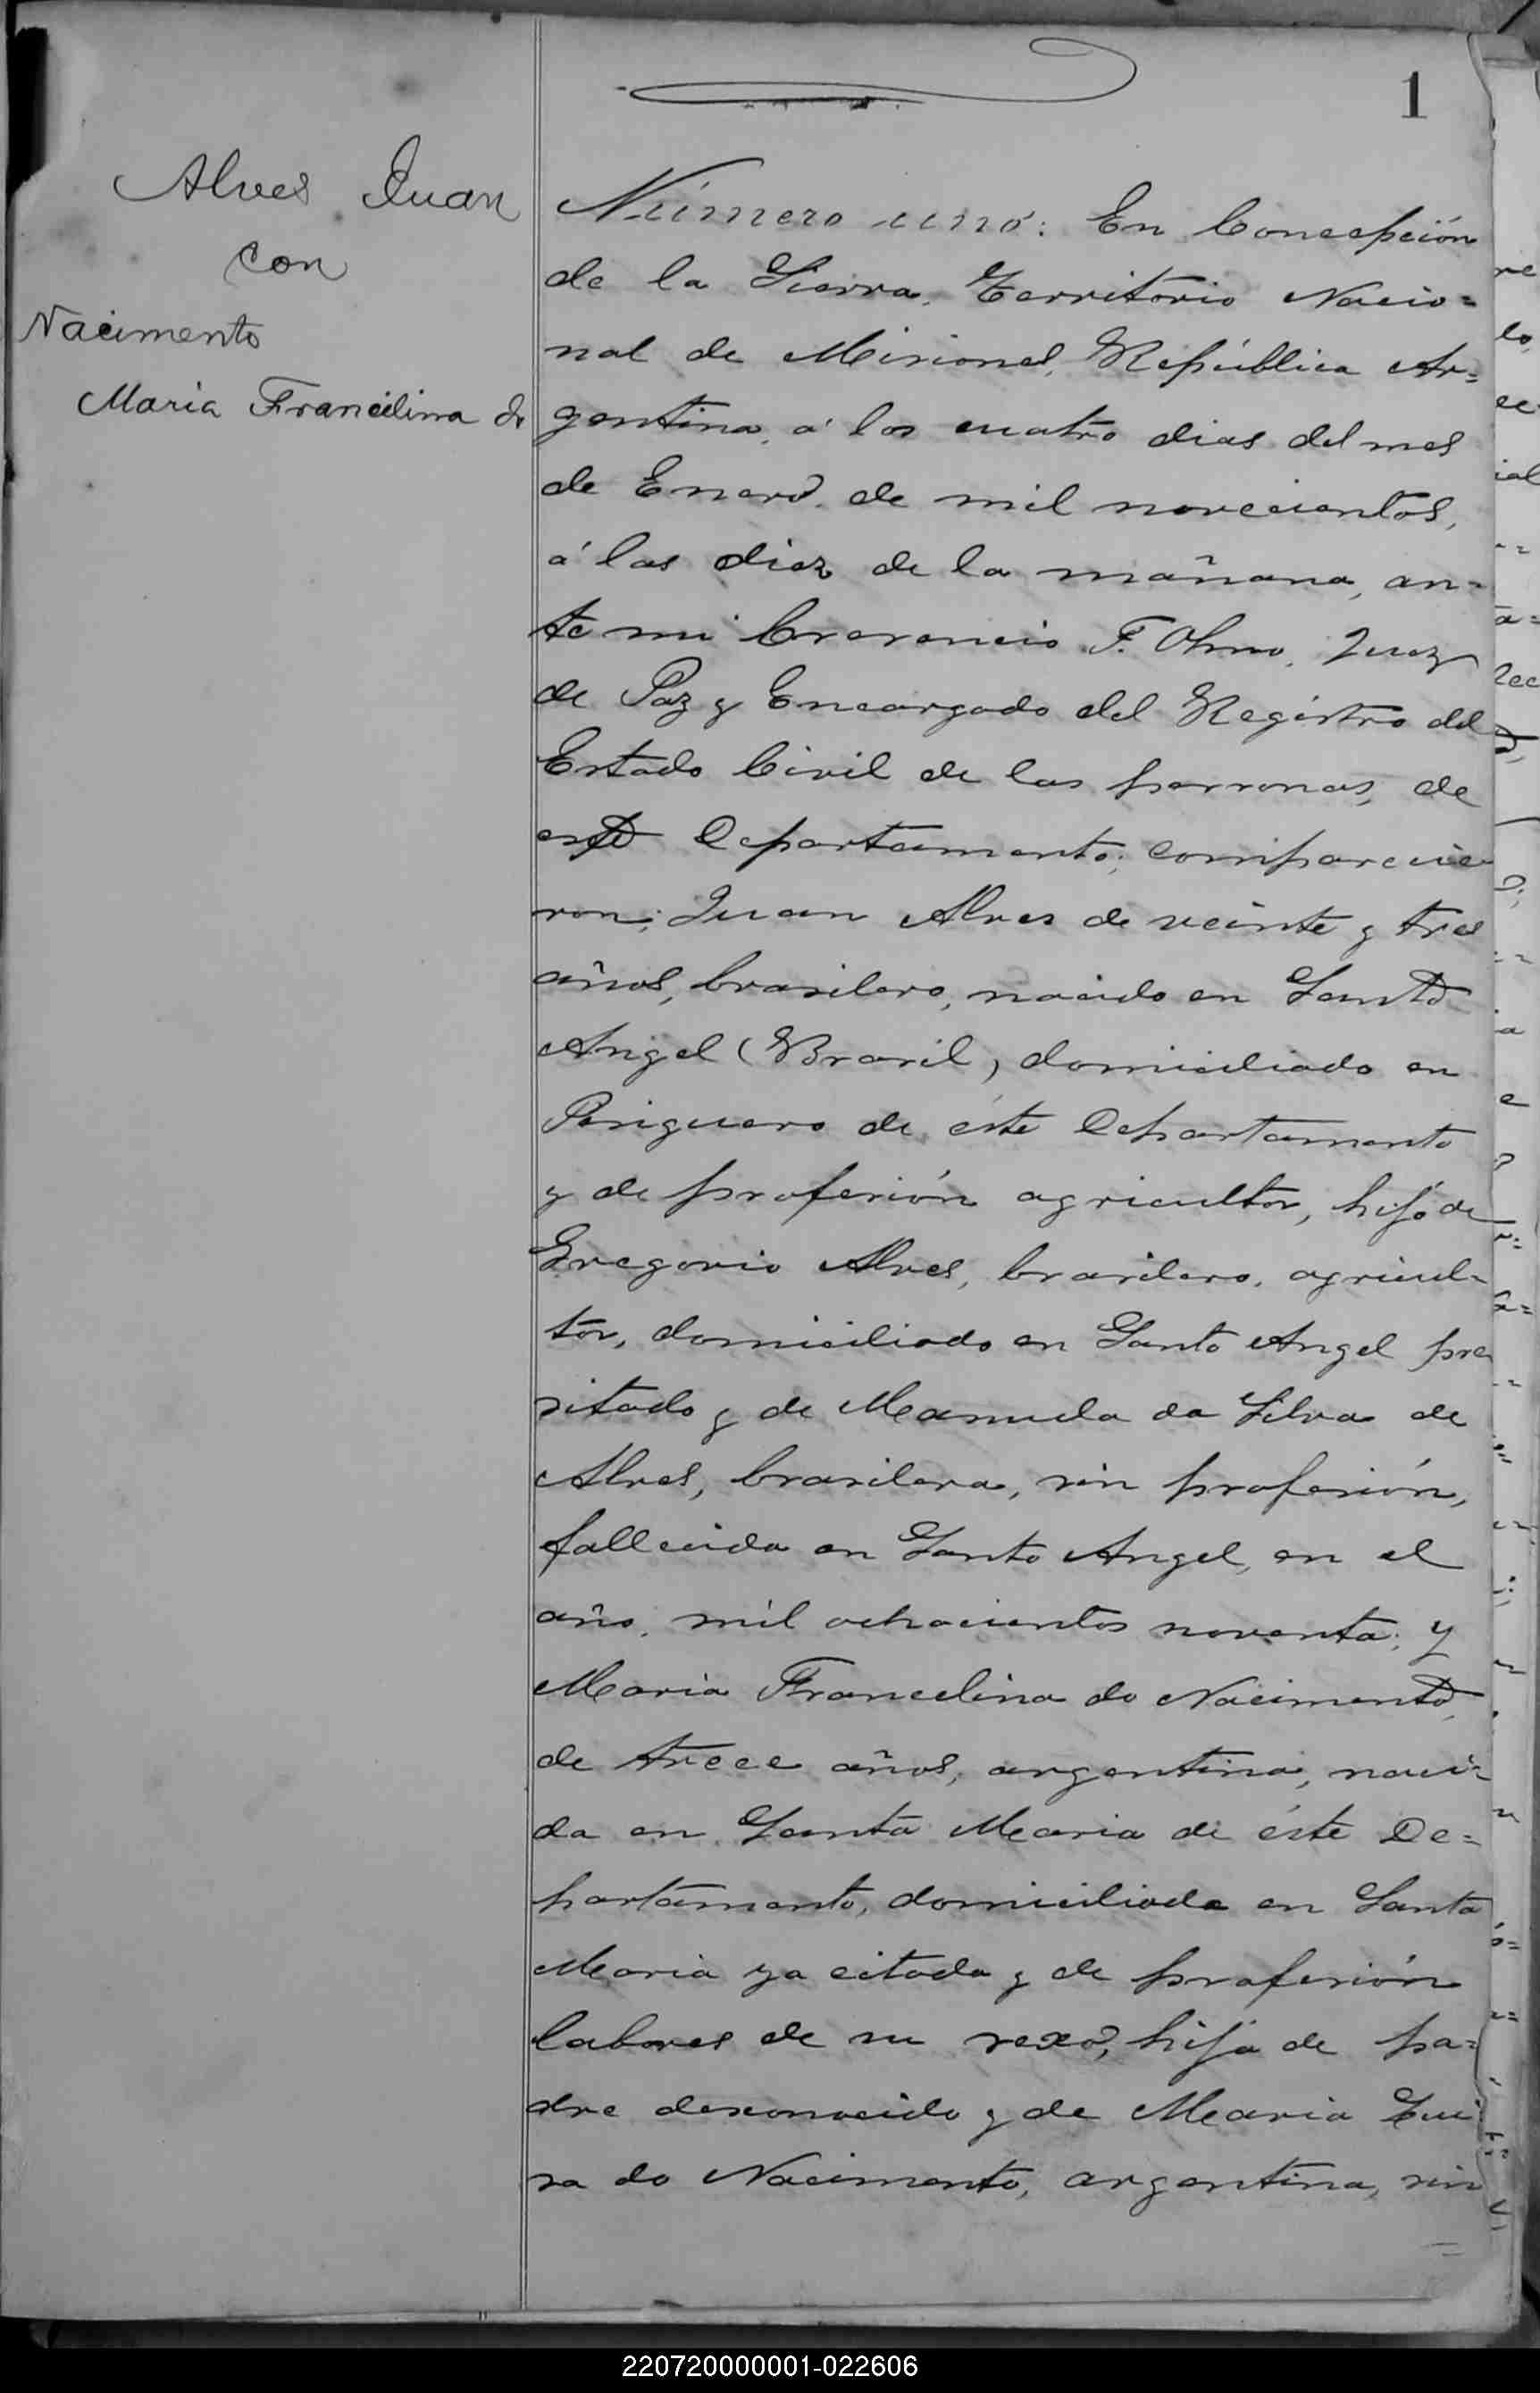 1
Alves Juan
con
Nacimento
Maria Francelina do
Número uno: En Concepción
de la Sierra, Territorio Nacio=
nal de Misiones, República Ar=
gentina, á los cuatro dias del mes
de Enero de mil novecientos,
á las diez de la mañana, an=
te mi F. Olmo, Juez
de Paz y Encargado del Registro del
Estado Civil de las personas, de
este Departamento; comparecie
ron; Juan Alves de veinte y tres
años, brasilero, nacido en Santo
Angel (Brasil) domiciliado en
de éste Departamento
y de profesión agricultor, hijo de
Gregorio Alves, brasilero, agricul=
tor, domiciliado en Santo Angel pre
sitado y de Manuela da Silva de
Alves, brasilera, sin profesión,
fallecida en Santo Angel, en el
año, mil ochocientos noventa; y
Maria Francelina do Nacimento,
de trece años, argentina, naci=
da en Santa Maria de éste De=
partamento, domiciliada en Santa
Maria ya citada y de profesión
labores de su sexo, hija de pa=
dre desconocido y de Maria Lui
sa do Nacimento, argentina, sin
220720000001-022606